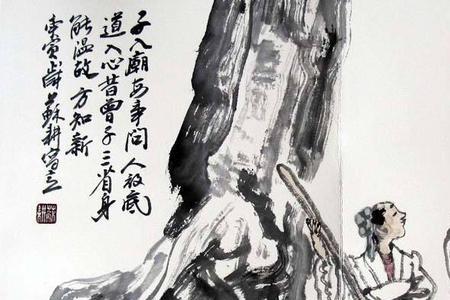 子入廟每事問人底
道入心昔曾子三省身
能温故方知新
寅歲蘇耕寫之